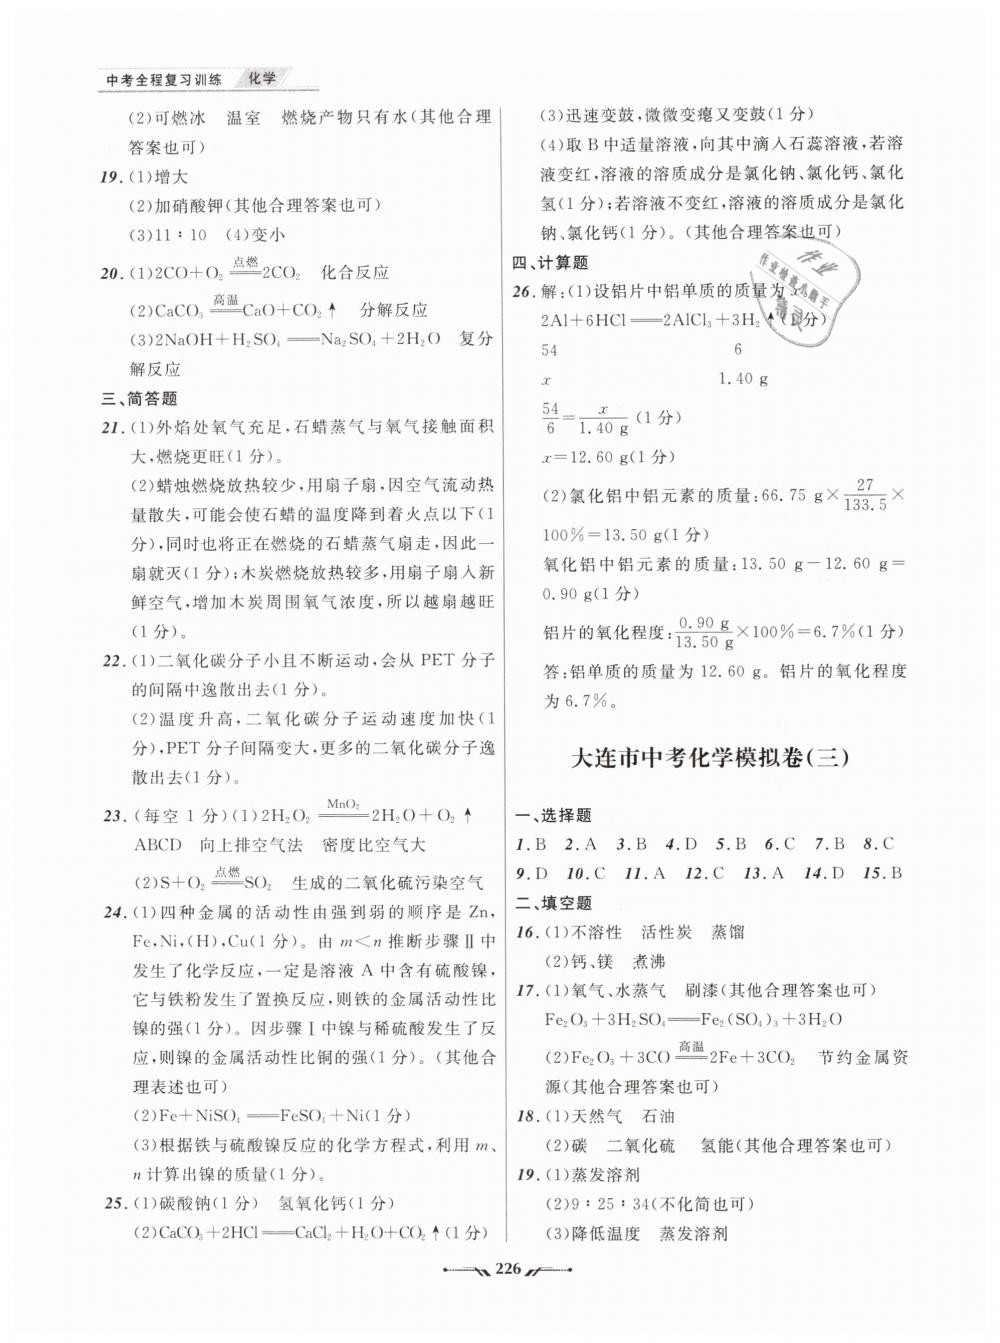 中考全程复习训练 化学
(2)可燃冰 温室 燃烧产物只有水(其他合理
答案也可)
19.(1)增大
(2)加硝酸钾(其他合理答案也可)
(3)11∶10 (4)变小
20.(1)2CO+O₂ 点燃══ 2CO₂ 化合反应
(2)CaCO₃ 高温══ CaO+CO₂↑ 分解反应
(3)2NaOH+H₂SO₄══Na₂SO₄+2H₂O 复分
解反应
三、简答题
21.(1)外焰处氧气充足,石蜡蒸气与氧气接触面积
大,燃烧更旺(1分)。
(2)蜡烛燃烧放热较少,用扇子扇,因空气流动热
量散失,可能会使石蜡的温度降到着火点以下(1
分),同时也将正在燃烧的石蜡蒸气扇走,因此一
扇就灭(1分);木炭燃烧放热较多,用扇子扇入新
鲜空气,增加木炭周围氧气浓度,所以越扇越旺
(1分)。
22.(1)二氧化碳分子小且不断运动,会从PET分子
的间隔中逸散出去(1分)。
(2)温度升高,二氧化碳分子运动速度加快(1
分),PET分子间隔变大,更多的二氧化碳分子逸
散出去(1分)。
23.(每空1分)(1)2H₂O₂ MnO₂══ 2H₂O+O₂↑
ABCD 向上排空气法 密度比空气大
(2)S+O₂ 点燃══ SO₂ 生成的二氧化硫污染空气
24.(1)四种金属的活动性由强到弱的顺序是Zn,
Fe,Ni,(H),Cu(1分)。由m<n推断步骤Ⅱ中
发生了化学反应,一定是溶液A中含有硫酸镍,
它与铁粉发生了置换反应,则铁的金属活动性比
镍的强(1分)。因步骤Ⅰ中镍与稀硫酸发生了反
应,则镍的金属活动性比铜的强(1分)。(其他合
理表述也可)
(2)Fe+NiSO₄══FeSO₄+Ni(1分)
(3)根据铁与硫酸镍反应的化学方程式,利用m、
n计算出镍的质量(1分)。
25.(1)碳酸钠(1分) 氢氧化钙(1分)
(2)CaCO₃+2HCl══CaCl₂+H₂O+CO₂↑(1分)
(3)迅速变鼓,微微变瘪又变鼓(1分)
(4)取B中适量溶液,向其中滴入石蕊溶液,若溶
液变红,溶液的溶质成分是氯化钠、氯化钙、氯化
氢(1分);若溶液不变红,溶液的溶质成分是氯化
钠、氯化钙(1分)。(其他合理答案也可)
四、计算题
26.解:(1)设铝片中铝单质的质量为x。
2Al+6HCl══2AlCl₃+3H₂↑(1分)
54 6
x 1.40 g
54/6=x/1.40 g(1分)
x=12.60 g(1分)
(2)氯化铝中铝元素的质量:66.75 g×27/133.5×
100%=13.50 g(1分)
氧化铝中铝元素的质量:13.50 g-12.60 g=
0.90 g(1分)
铝片的氧化程度:0.90 g/13.50 g×100%=6.7%(1分)
答:铝单质的质量为12.60 g。铝片的氧化程度
为6.7%。
大连市中考化学模拟卷(三)
一、选择题
1.B 2.A 3.B 4.D 5.B 6.C 7.B 8.C
9.D 10.C 11.A 12.C 13.A 14.D 15.B
二、填空题
16.(1)不溶性 活性炭 蒸馏
(2)钙、镁 煮沸
17.(1)氧气、水蒸气 刷漆(其他合理答案也可)
Fe₂O₃+3H₂SO₄══Fe₂(SO₄)₃+3H₂O
(2)Fe₂O₃+3CO 高温══ 2Fe+3CO₂ 节约金属资
源(其他合理答案也可)
18.(1)天然气 石油
(2)碳 二氧化硫 氢能(其他合理答案也可)
19.(1)蒸发溶剂
(2)9∶25∶34(不化简也可)
(3)降低温度 蒸发溶剂
226
作业
作业检查小助手
精灵